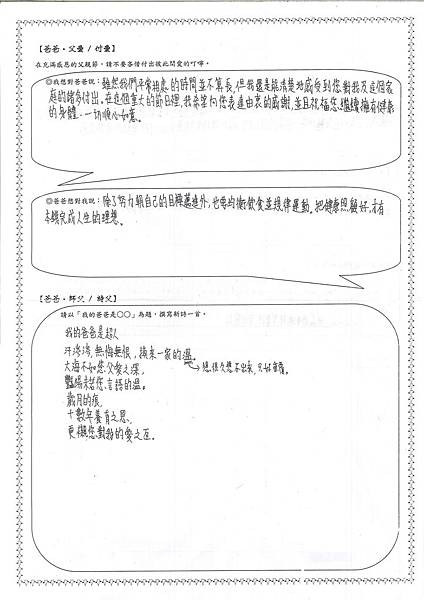 【爸爸‧父愛 / 付愛】
在充滿感恩的父親節，請不要吝惜付出彼此關愛的叮嚀。
◎我想對爸爸說：雖然我們平常相處的時間並不算長，但我還是能清楚地感受到您對我及這個家
庭的諸多付出。在這個重大的節日裡，我希望向您表達由衷的感謝，並且祝福您繼續擁有健康
的身體，一切順心如意。
◎爸爸想對我說：除了努力朝自己的目標邁進外，也要均衡飲食並規律運動。把健康照顧好，才有
本錢完成人生的理想。
【爸爸‧師父 / 詩父】
請以「我的爸爸是○○」為題，撰寫新詩一首。
我的爸爸是超人
汗涔涔，無悔無恨，換來一家的溫。
大海不如您父愛之深，
→ 想很久想不出來，只好重複。
豔陽未若您言語的溫。
歲月的痕，
十數年養育之恩，
更襯您對我的愛之至。